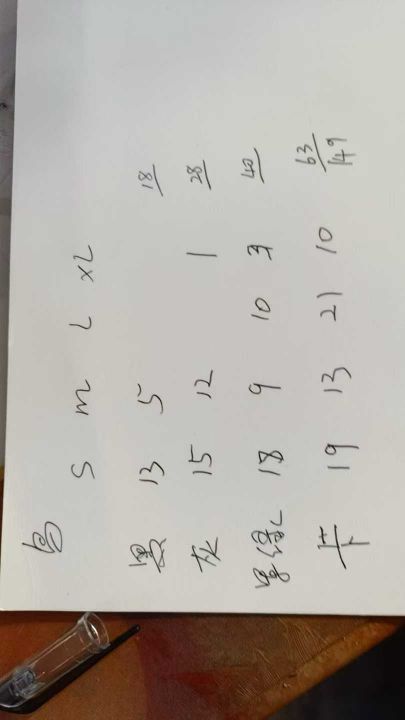 S M L XL
黑 13 5 18
灰 15 12 1 28
墨绿 18 9 10 3 40
卡 19 13 21 10 63
149